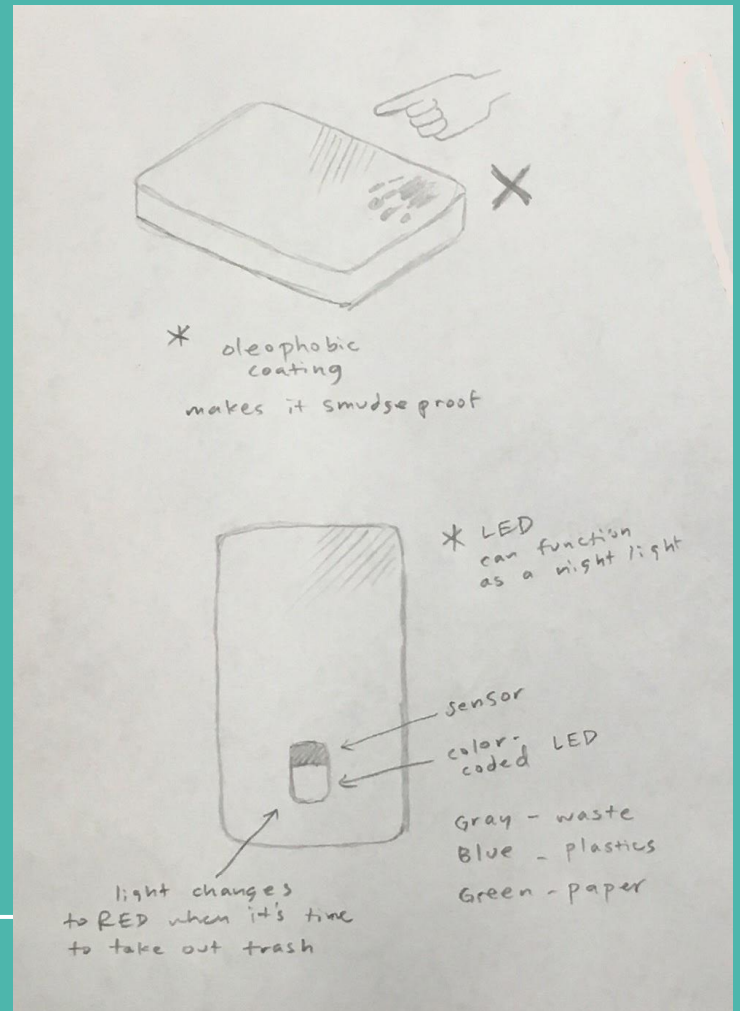 * oleophobic
coating
makes it smudgeproof
* LED
can function
as a night light
sensor
color-
coded LED
Gray - waste
Blue - plastics
Green - paper
light changes
to RED when it's time
to take out trash